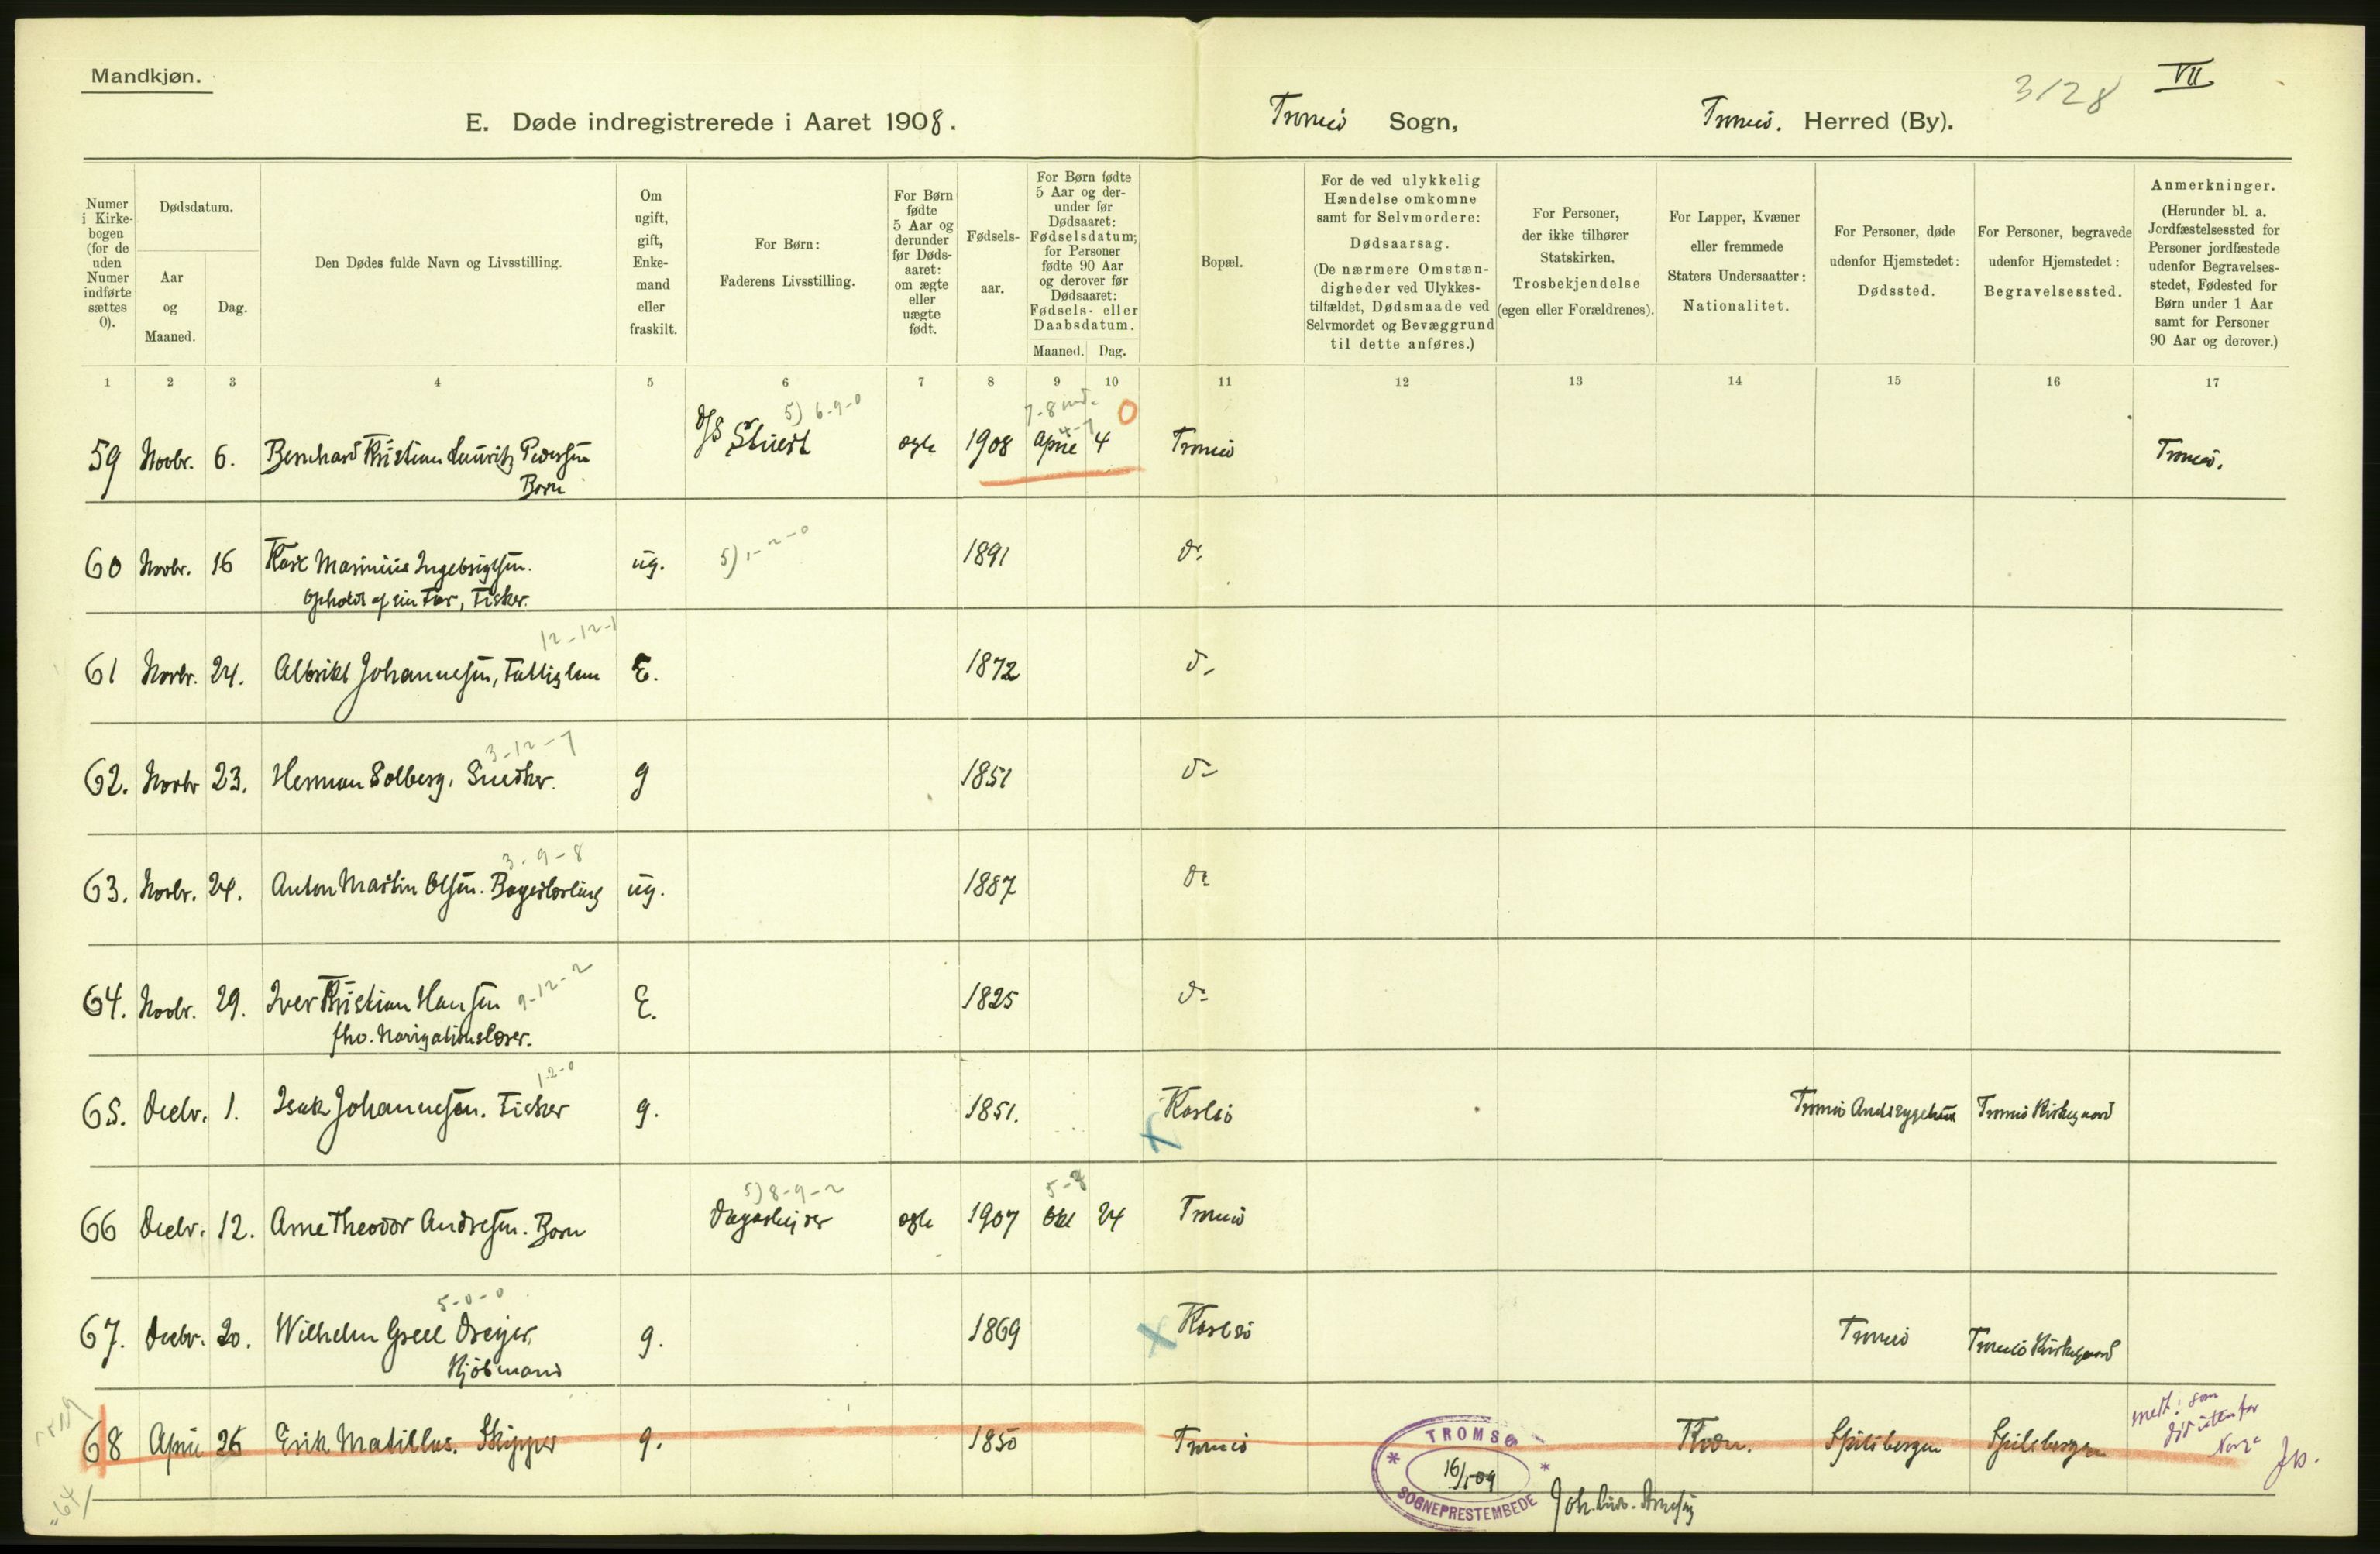 Mandkjøn.
3128
VII
E. Døde indregistrerede i Aaret 1908.
Tromsö Sogn,
Tromsö. Herred (By).
Numer i Kirke- bogen (for de uden Numer indførte sættes 0).
Dødsdatum.
Aar og Maaned.
Dag.
Den Dødes fulde Navn og Livsstilling.
Om ugift, gift, Enke- mand eller fraskilt.
For Børn: Faderens Livsstilling.
For Børn fødte 5 Aar og derunder før Døds- aaret: om ægte eller uægte født.
Fødsels- aar.
For Børn fødte 5 Aar og der- under før Dødsaaret: Fødselsdatum; for Personer fødte 90 Aar og derover før Dødsaaret: Fødsels- eller Daabsdatum.
Maaned. Dag.
Bopæl.
For de ved ulykkelig Hændelse omkomne samt for Selvmordere: Dødsaarsag. (De nærmere Omstæn- digheder ved Ulykkes- tilfældet, Dødsmaade ved Selvmordet og Bevæggrund til dette anføres.)
For Personer, der ikke tilhører Statskirken, Trosbekjendelse (egen eller Forældrenes).
For Lapper, Kvæner eller fremmede Staters Undersaatter: Nationalitet.
For Personer, døde udenfor Hjemstedet: Dødssted.
For Personer, begravede udenfor Hjemstedet: Begravelsessted.
Anmerkninger. (Herunder bl. a. Jordfæstelsessted for Personer jordfæstede udenfor Begravelses- stedet, Fødested for Børn under 1 Aar samt for Personer 90 Aar og derover.)
1 2 3 4 5 6 7 8 9 10 11 12 13 14 15 16 17
5) 6-9-0
7-8 md. 0
4-7
59 Novbr. 6. Bernhard Kristian Lauritz Pedersen D/S Stuert ægte 1908 April 4 Tromsö Tromsö.
Barn
5) 1-2-0
60 Novbr. 16 Karl Marinius Ingebrigtsen. ug. 1891 do.
Opholdt af sin Far, Fisker.
12-12-1
61 Novbr. 24. Albrikt Johannesen, Fattiglem E. 1872 do
3-12-7
62. Novbr 23. Herman Solberg, Snedker. g 1851 do
3-9-8
63. Novbr. 24. Anton Martin Olsen. Bagerlærling ug. 1887 do
9-12-2
64. Novbr. 29. Iver Kristian Hansen E. 1825 do
fhv. Navigationslærer.
1-2-0
65. Decbr. 1. Isak Johannesen. Fisker g. 1851. Karlsö Tromsö Amtssygehus Tromsö Kirkegaard
5) 8-9-2
5-7
66 Decbr. 12. Arne Theodor Andresen. Barn Dagarbejder ægte 1907 Okt 24 Tromsö
5-0-0
67. Decbr. 20. Wilhelm Greel Dreyer, g. 1869 Karlsö Tromsö Tromsö Kirkegaard
Kjöbmand
68 April 26 Erik Matillas. Skipper g. 1850 Tromsö Kvæn. Spitsbergen Spitsbergen
som död utenfor Norge
TROMSØ
16/1-09
SOGNEPRESTEMBEDE